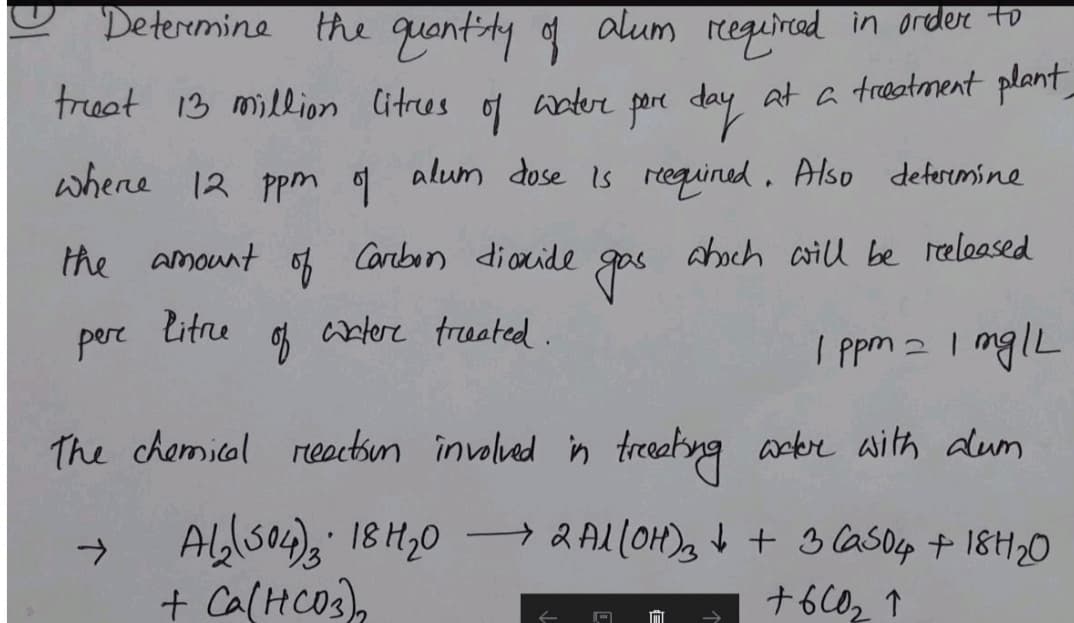 ① Determine the quantity of alum required in order to
treat 13 million litres of water per day at a treatment plant,
where 12 ppm of alum dose is required. Also determine
the amount of Carbon dioxide gas whoch will be released
per litre of water treated.
1 ppm = 1 mg/L
The chemical reaction involved in treating water with alum
→ Al₂(SO₄)₃·18H₂O → 2Al(OH)₃ ↓ + 3CaSO₄ + 18H₂O
+ Ca(HCO₃)₂ + 6CO₂ ↑